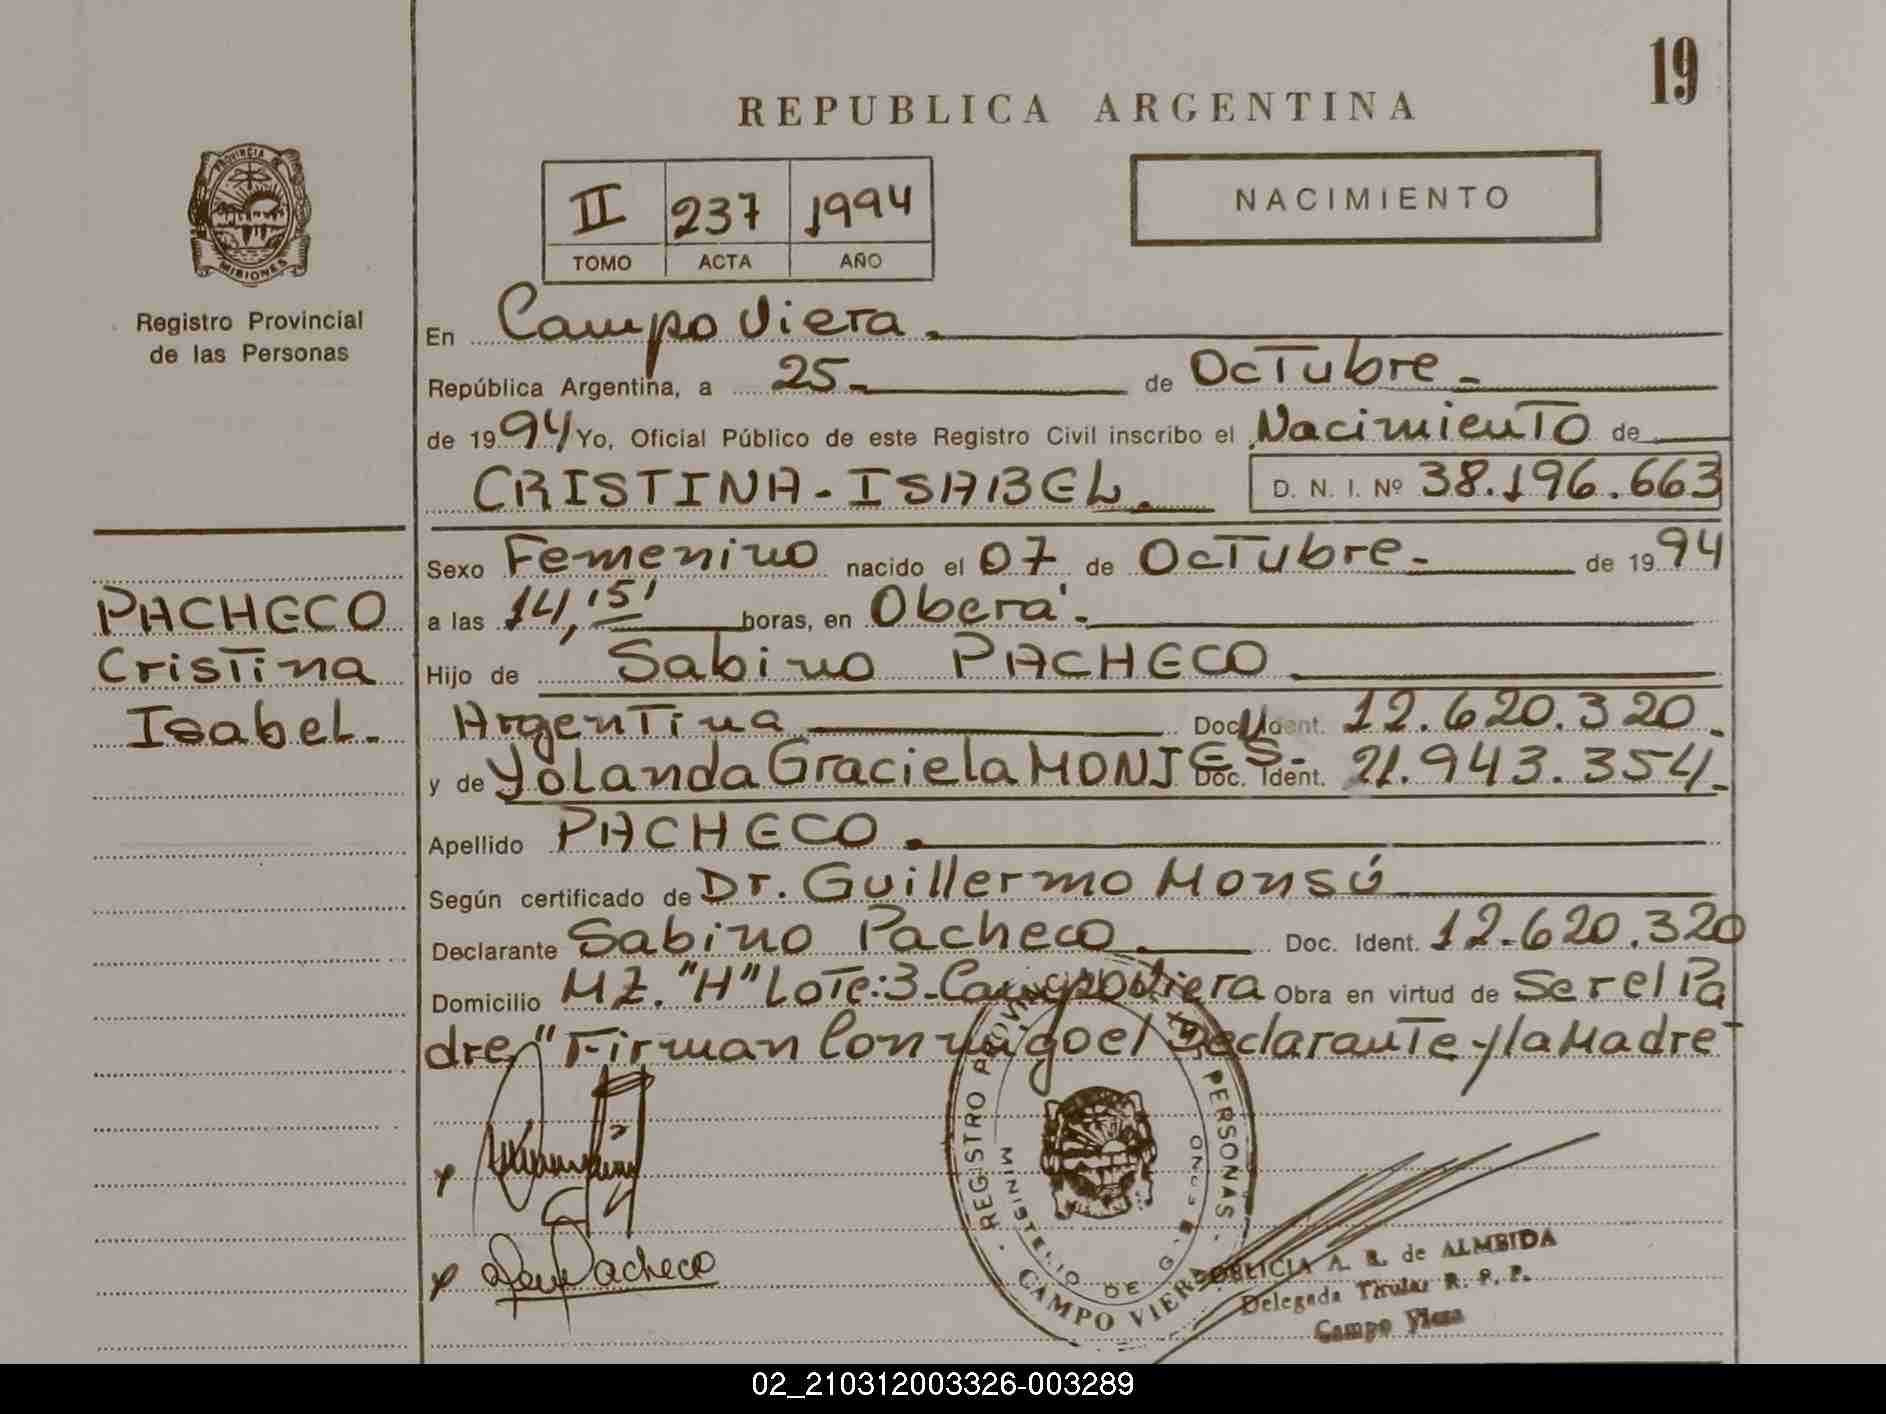 19
REPUBLICA ARGENTINA
PROVINCIA DE
MISIONES
Registro Provincial
de las Personas
II 237 1994
TOMO ACTA AÑO
NACIMIENTO
En Campo Viera.
República Argentina, a 25 de Octubre
de 1994 Yo, Oficial Público de este Registro Civil inscribo el Nacimiento de
CRISTINA - ISABEL. D. N. I. Nº 38.196.663
Sexo Femenino nacido el 07 de Octubre de 1994
PACHECO
Cristina
Isabel.
a las 14,15' horas, en Oberá.
Hijo de Sabino PACHECO
Argentina Doc. Ident. 12.620.320.
y de Yolanda Graciela MONJES- Doc. Ident. 21.943.354.
Apellido PACHECO.
Según certificado de Dr. Guillermo Monsú
Declarante Sabino Pacheco. Doc. Ident. 12.620.320
Domicilio MZ. "H" Lote:3-Campo Viera Obra en virtud de Ser el Pa
dre," Firman Conmigo el Declarante y la Madre
REGISTRO PROVINCIAL DE LAS PERSONAS
MINISTERIO DE G.
CAMPO VIERA
Pacheco
A. R. de ALMEIDA
Delegada Titular R. P. P.
Campo Viera
02_210312003326-003289